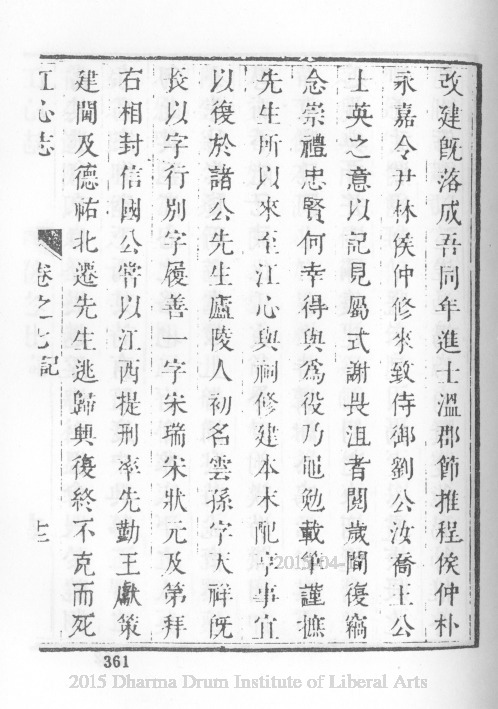 改建旣落成吾同年進士溫郡節推程侯仲朴
永嘉令尹林侯仲修來致侍御劉公汝喬王公
士英之意以記見屬式謝畏沮者閱歲間復竊
念崇禮忠賢何幸得與爲役乃黽勉載筆謹摭
先生所以來至江心與祠修建本末配享事宜
以復於諸公先生廬陵人初名雲孫字天祥旣
長以字行別字履善一字宋瑞宋狀元及第拜
右相封信國公嘗以江西提刑率先勤王獻策
建閫及德祐北遷先生逃歸興復終不克而死
江心志 卷之七記 十二
361
2015-04-
2015 Dharma Drum Institute of Liberal Arts